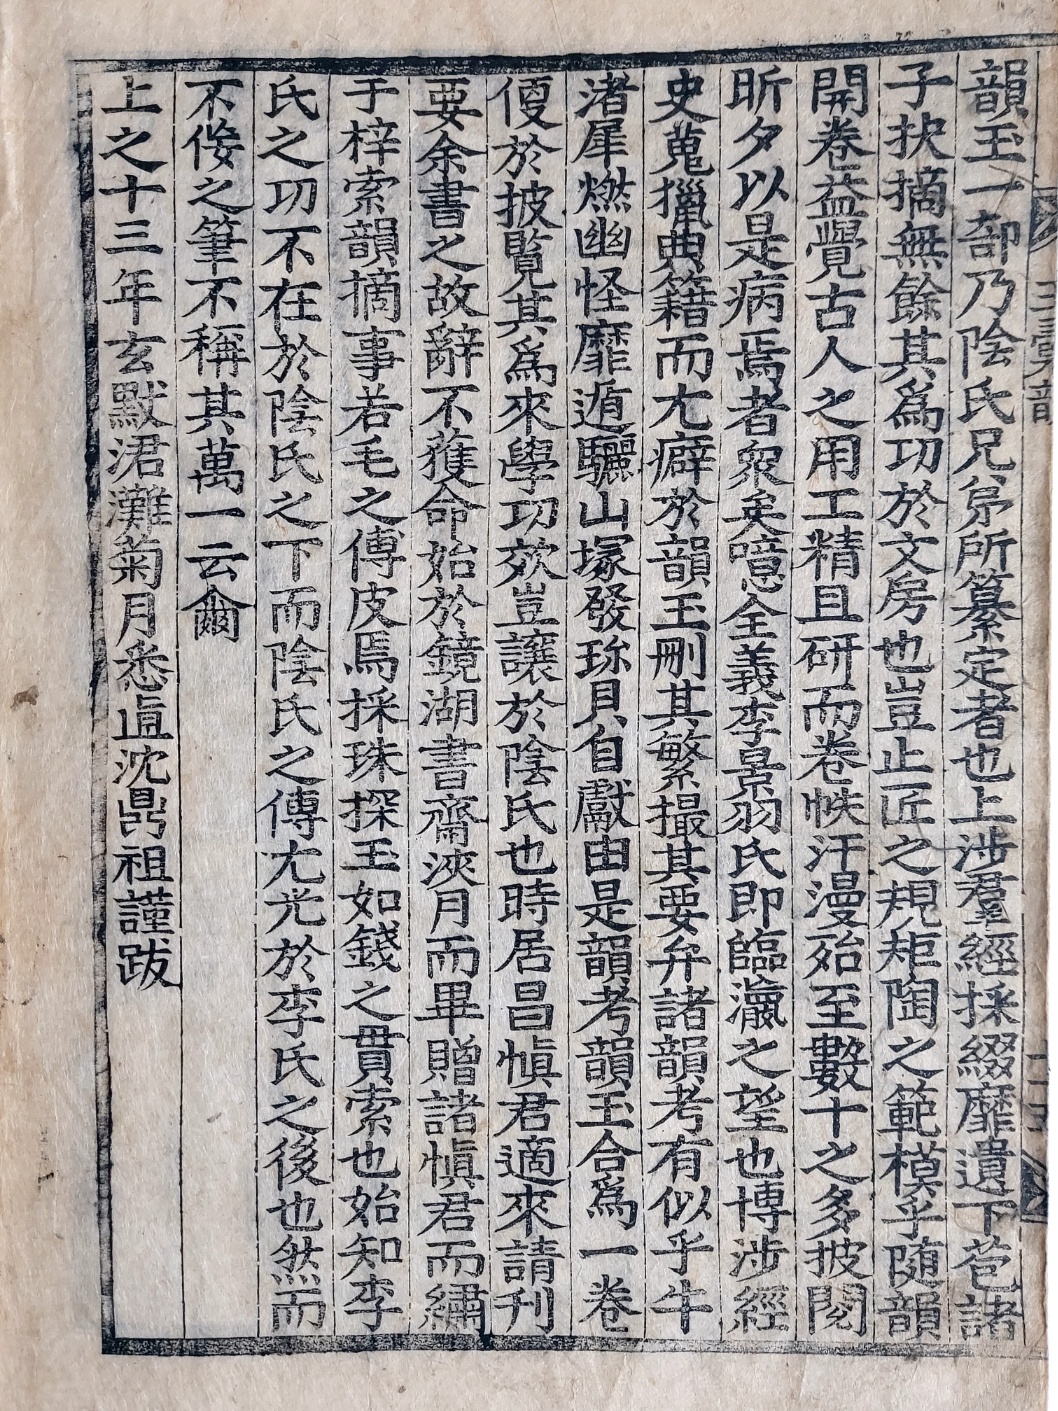 韻玉一部乃陰氏兄弟所纂定者也上涉羣經採綴靡遺下苞諸
子抉摘無餘其爲功於文房也豈止匠之規矩陶之範模乎随韻
開卷益覺古人之用工精且研而卷帙汗漫殆至數十之多披閱
昕夕以是病焉者衆矣噫全義李景羽氏即臨瀛之望也博涉經
史蒐獵典籍而尤癖於韻玉刪其繁撮其要弁諸韻考有似乎牛
渚犀燃幽怪靡遁驪山塚發珎貝自獻由是韻考韻玉合爲一卷
便於披覧其爲來學功效豈讓於陰氏也時居昌愼君適來請刊
要余書之故辭不獲命始於鏡湖書齋浹月而畢贈諸愼君而繡
于梓索韻摘事若毛之傅皮焉採珠探玉如錢之貫索也始知李
氏之功不在於陰氏之下而陰氏之傳尤光於李氏之後也然而
不佞之筆不稱其萬一云爾
上之十三年玄默涒灘菊月悉直沈鼎祖謹跋